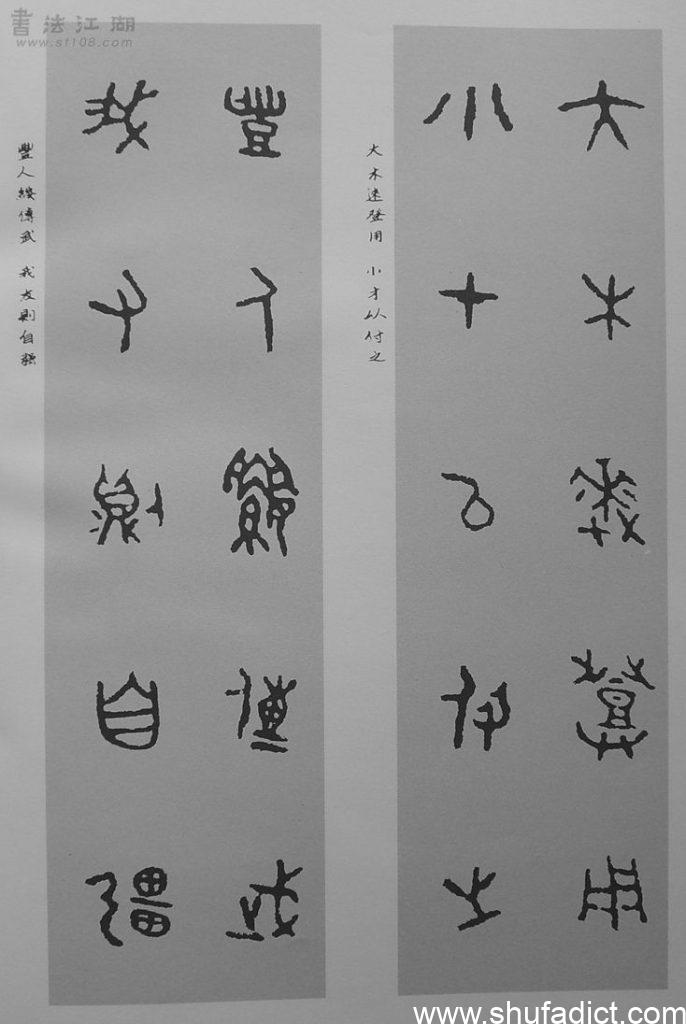 書法江湖
www.sf108.com
大木逨登用
小才以付之
大木逨登用 小才以付之
豐人綏傅武
我友則自彊
豐人綏傅武 我友則自彊
www.shufadict.com